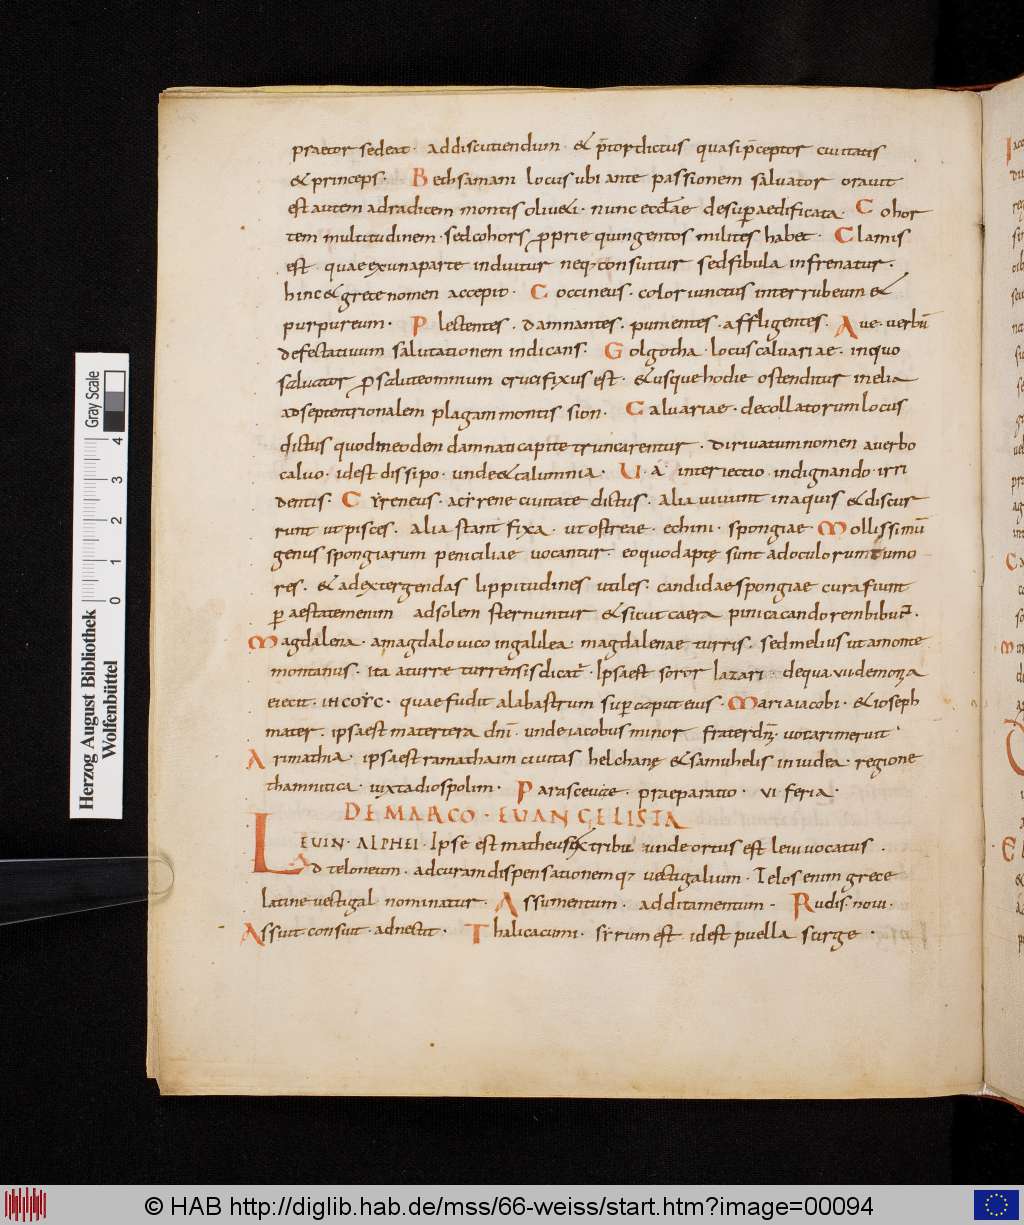 praetor sedeat · ad discutiendum · & p̄tor dictus quasi p̄ceptor ciuitatis
& princeps · Bethsamani locus ubi ante passionem saluator orauit
est autem ad radicem montis oliueti · nunc eccl̄ae desup aedificata · Cohor
tem multitudinem · sed cohors pprie quingentos milites habet · Clamis
est quae ex una parte induitur neq· consuitur sed fibula infrenatur ·
hinc & grece nomen accepit · Coccineus · color iunctus inter rubeum &
purpureum · Plectentes · damnantes · punientes · affligentes · Aue · uerbū
defectatiuum salutationem indicans · Golgotha · locus caluariae · in quo
saluator p salute omnium crucifixus est · & usque hodie ostenditur in elia
ad septentrionalem plagam montis sion · Caluariae · decollatorum locus
dictus quod in eodem damnati capite truncarentur · diriuatum nomen a uerbo
caluo · id est dissipo · unde & calumnia · Ua interiectio indignando irri
dentis · Cyreneus · a cyrene ciuitate dictus · alia uiuunt in aquis & discur
runt ut pisces · alia stant fixa · ut ostreae · echini · spongiae Mollissimū
genus spongiarum peniciliae uocantur eo quod aptę sunt ad oculorum tumo
res · & ad extergendas lippitudines utiles · candidae spongiae cura fiunt
p aestatem enim ad solem sternuntur & sicut caera punica candorem bibunt ·
Magdalena · a magdalo uico in galilea · magdalenae turris · sed melius ut a monte
montanus · ita a turre turrensis dicat · Ipsa est soror lazari · de qua uii demonia
eiecit · quae fudit alabastrum sup caput eius · Maria iacobi · & ioseph
mater · ipsa est matertera dn̄i · unde iacobus minor frater dn̄i uocari meruit ·
Arimathia · ipsa est ramathaim ciuitas helchanę & samuhelis in iudea · regione
thamnitica · iuxta diospolim · Parasceuae · praeparatio · ui feria ·
DE MARCO · EUANGELISTA
LEUIN · ALPHEI · Ipse est matheus ex tribu unde ortus est leui uocatus ·
Ad teloneum · ad curam dispensationemq· uectigalium · Telos enim grece
latine uectigal nominatur · Assumentum · additamentum · Rudis · noui ·
Assuit consuit · adnectit · Thalicacumi · syrum est id est puella surge ·
Herzog August Bibliothek
Wolfenbüttel
Gray Scale
0 1 2 3 4
© HAB http://diglib.hab.de/mss/66-weiss/start.htm?image=00094